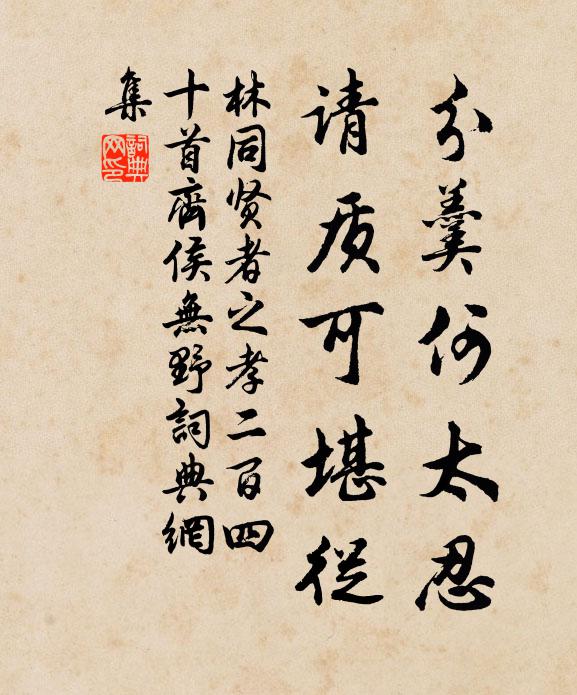 分羹何太忍
请质可堪從
林同贤者之孝二百四
十首齊侯無野詞典網
集
詞典网印